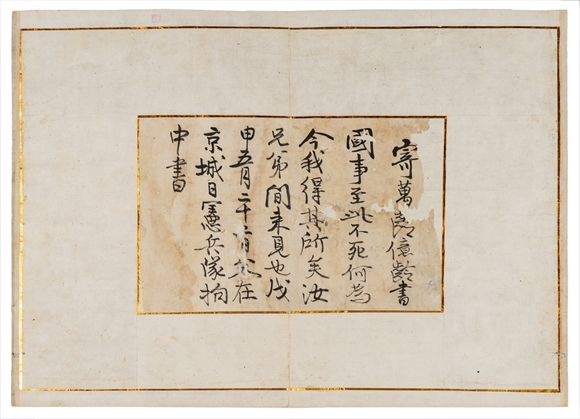 寄萬郎億齡書
國事至此不死何爲
今我得其所矣汝
兄弟間来見也戊
申五月二十日父在
京城日憲兵隊拘
中書